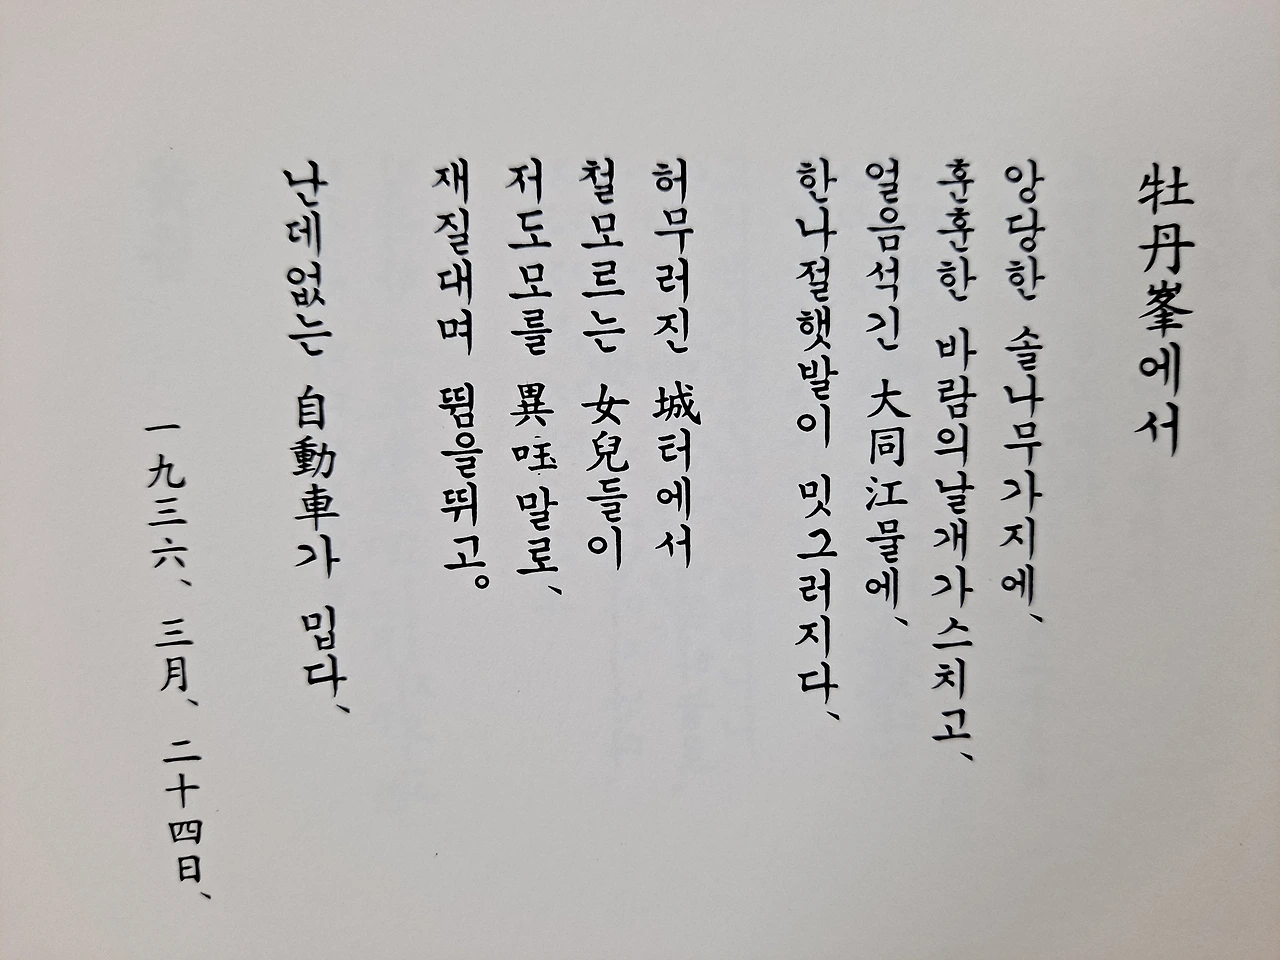 牡丹峯에서
앙당한 솔나무가지에、
훈훈한 바람의날개가스치고、
얼음석긴 大同江물에、
한나절햇발이 밋그러지다、
허무러진 城터에서
철모르는 女兒들이
저도모를 異국말로、
재질대며 뜀을뛰고。
난데없는 自動車가 밉다、
一九三六、三月、二十四日、